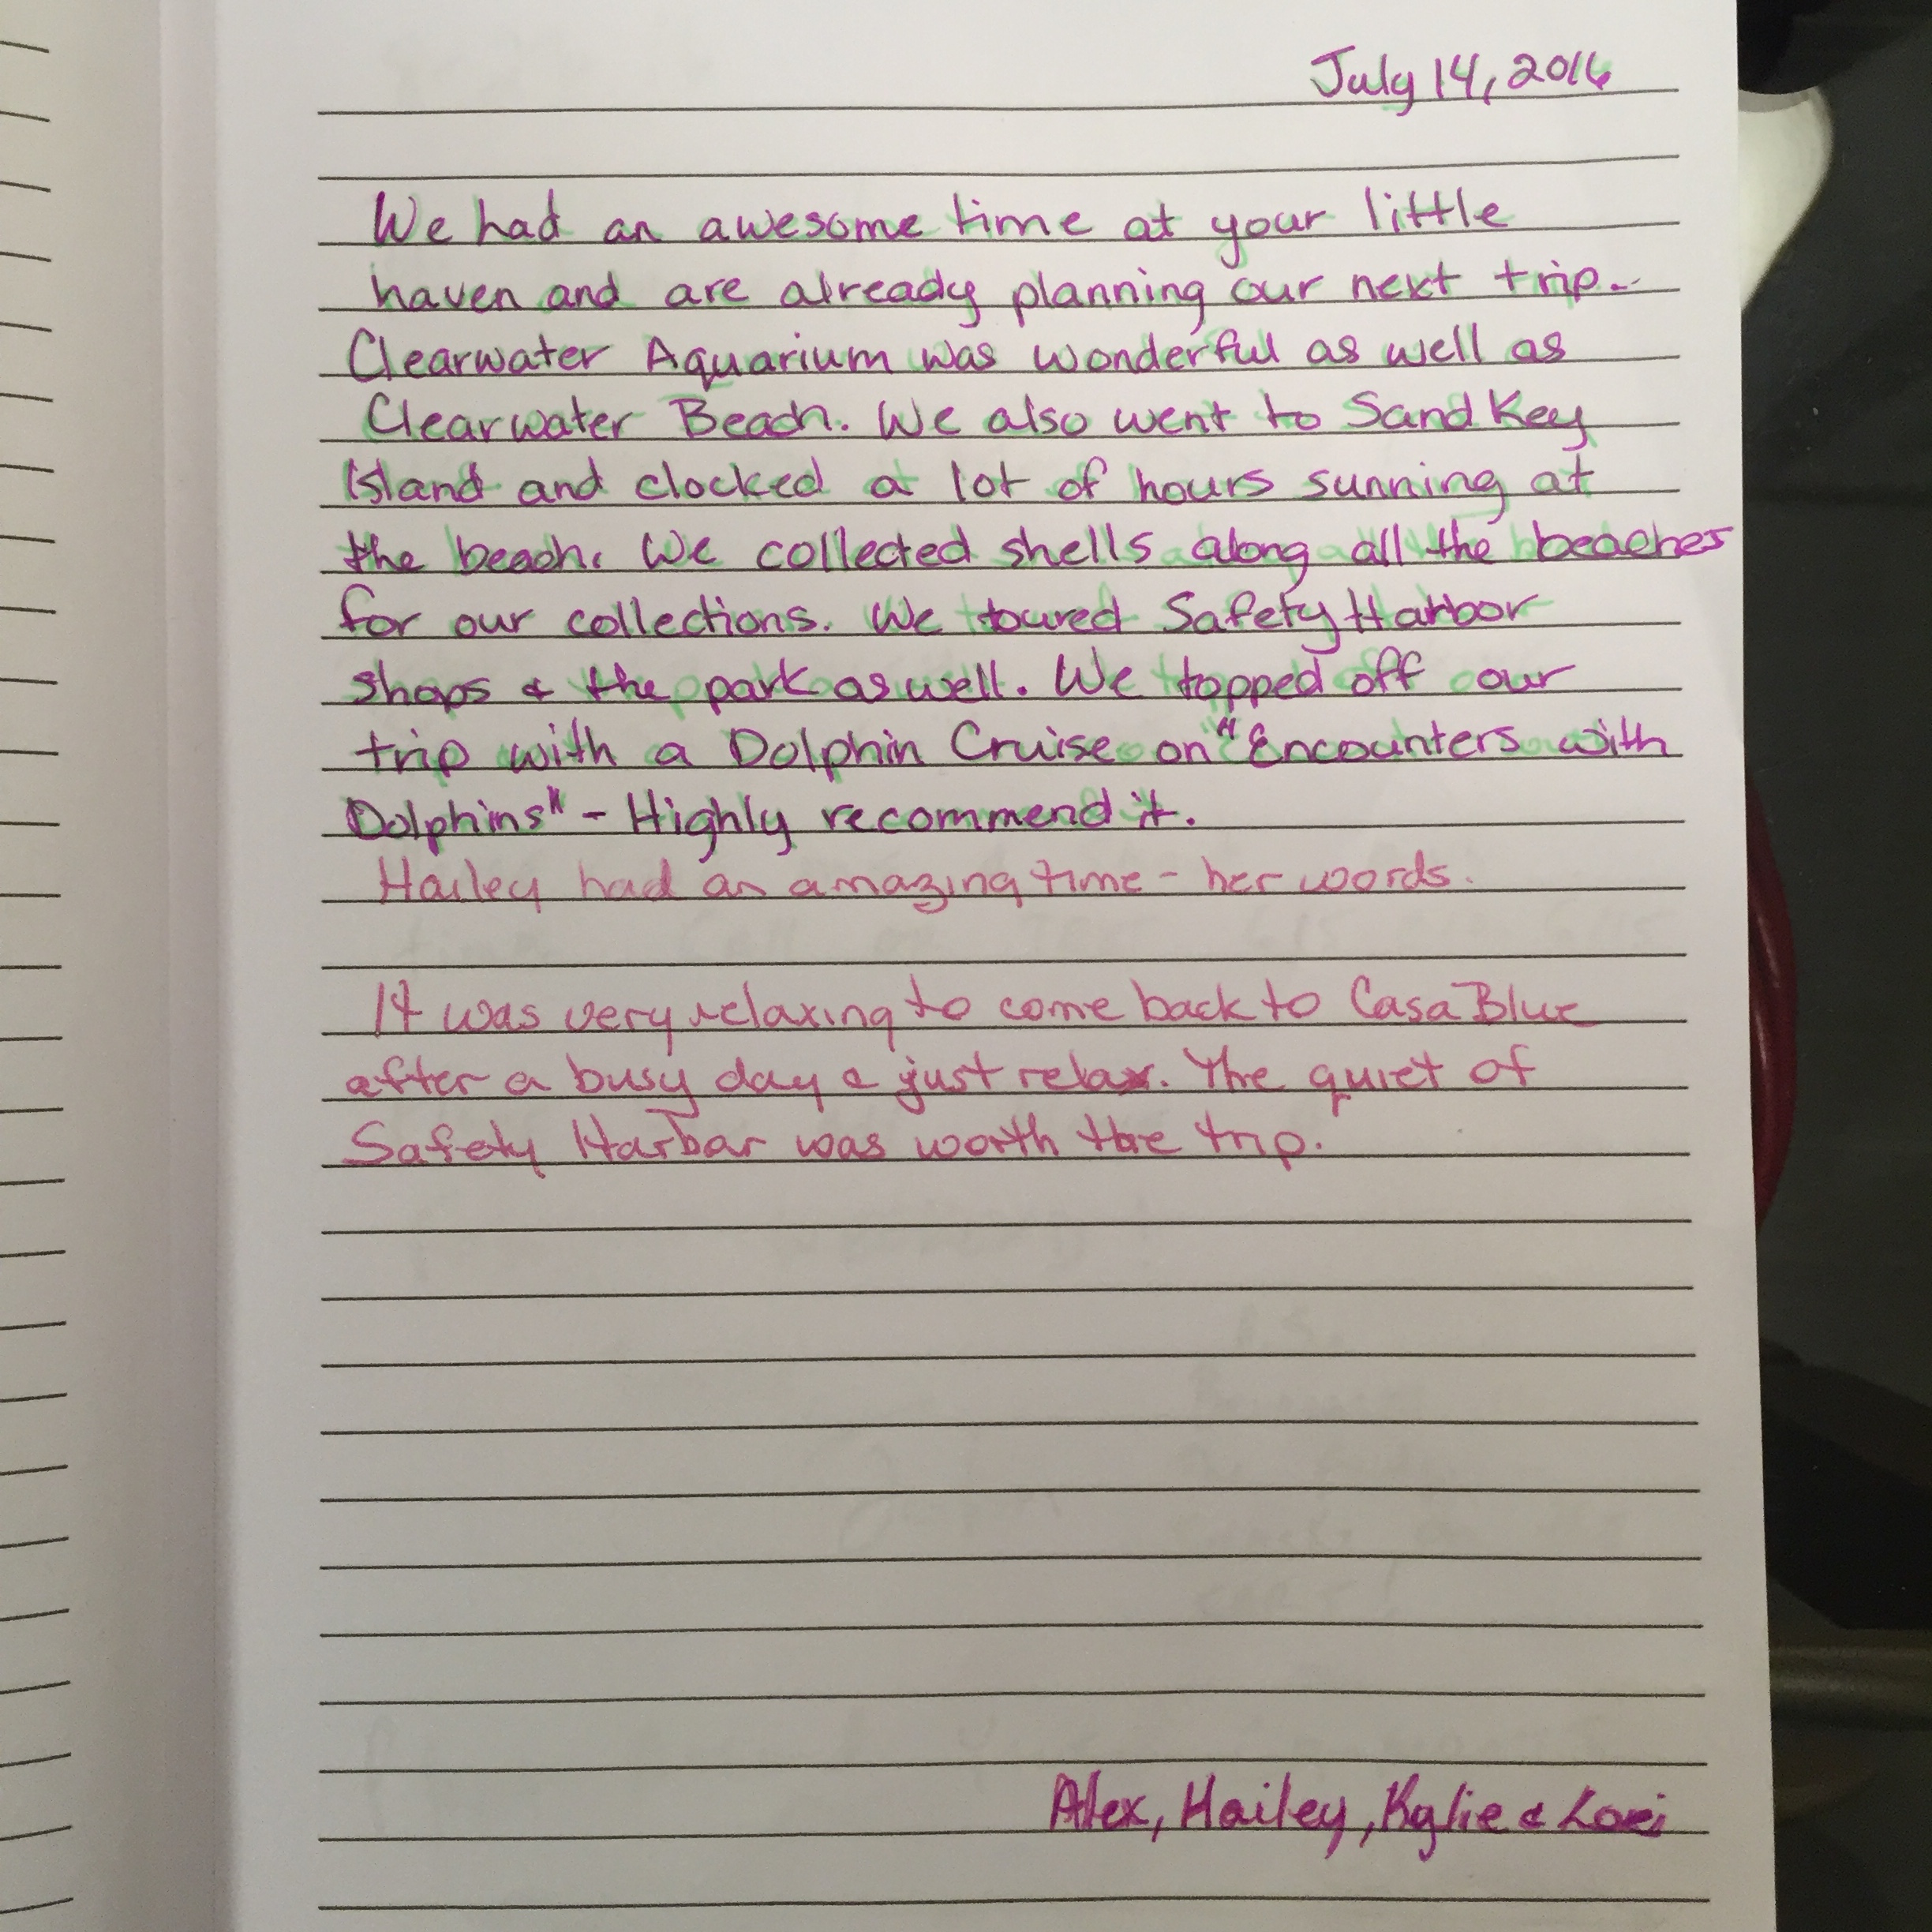 July 14, 2016
We had an awesome time at your little
haven and are already planning our next trip.
Clearwater Aquarium was wonderful as well as
Clearwater Beach. We also went to Sand Key
Island and clocked a lot of hours sunning at
the beach. We collected shells along all the beaches
for our collections. We toured Safety Harbor
shops & the park as well. We topped off our
trip with a Dolphin Cruise on "Encounters with
Dolphins" - Highly recommend it.
Hailey had an amazing time - her words.
It was very relaxing to come back to Casa Blue
after a busy day & just relax. The quiet of
Safety Harbar was worth the trip.
Alex, Hailey, Kylie & Lori